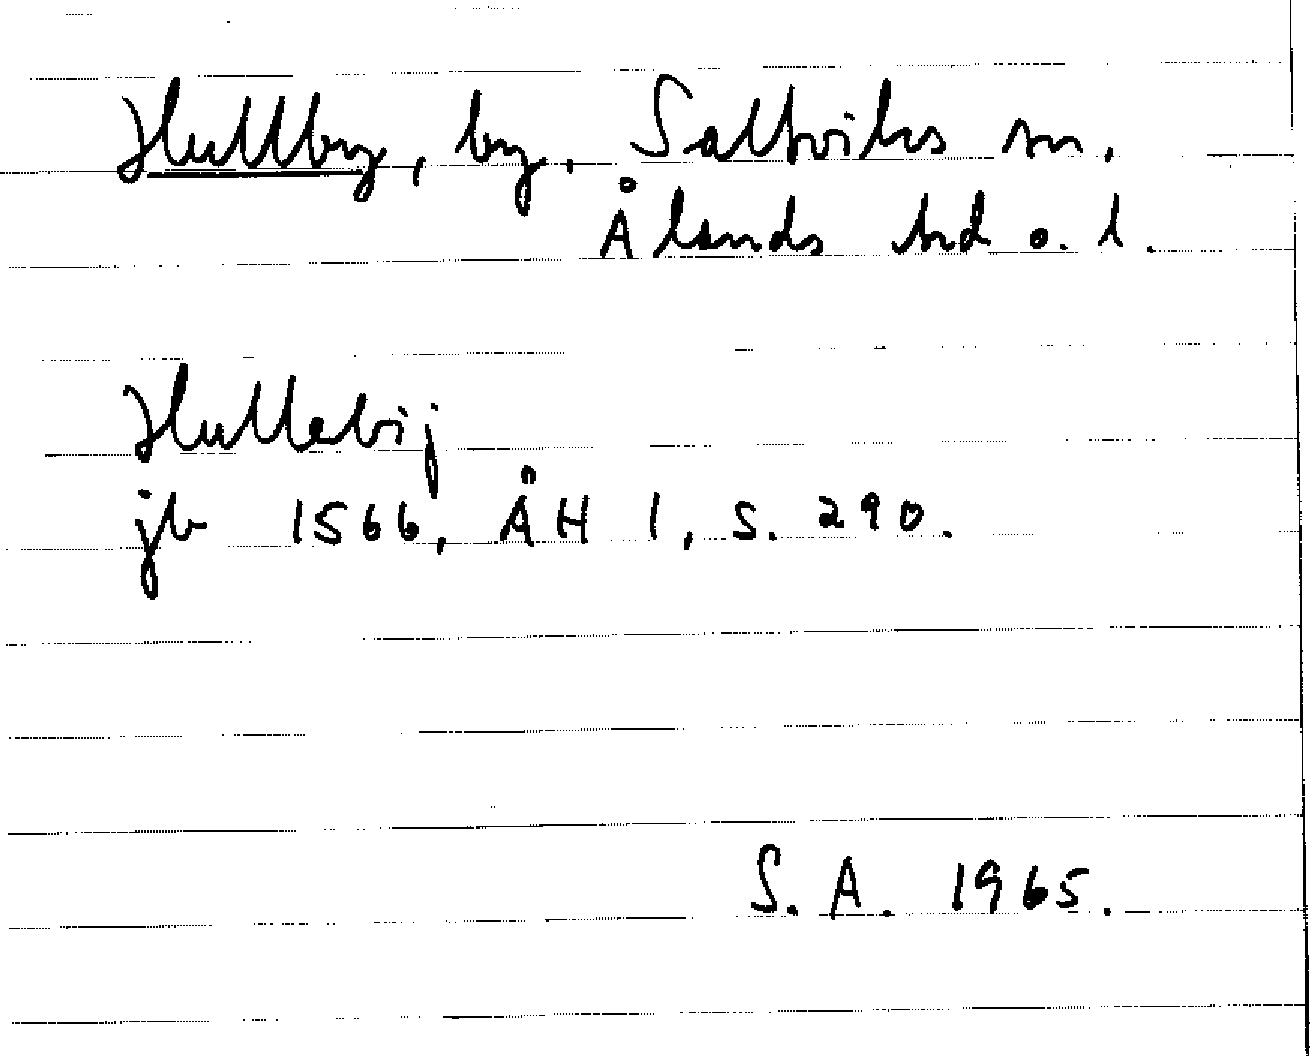 Hullby, by, Saltviks sn,
Ålands hd o. l.
Hullebij
jb 1566, ÅH 1, s. 290.
S. A. 1965.